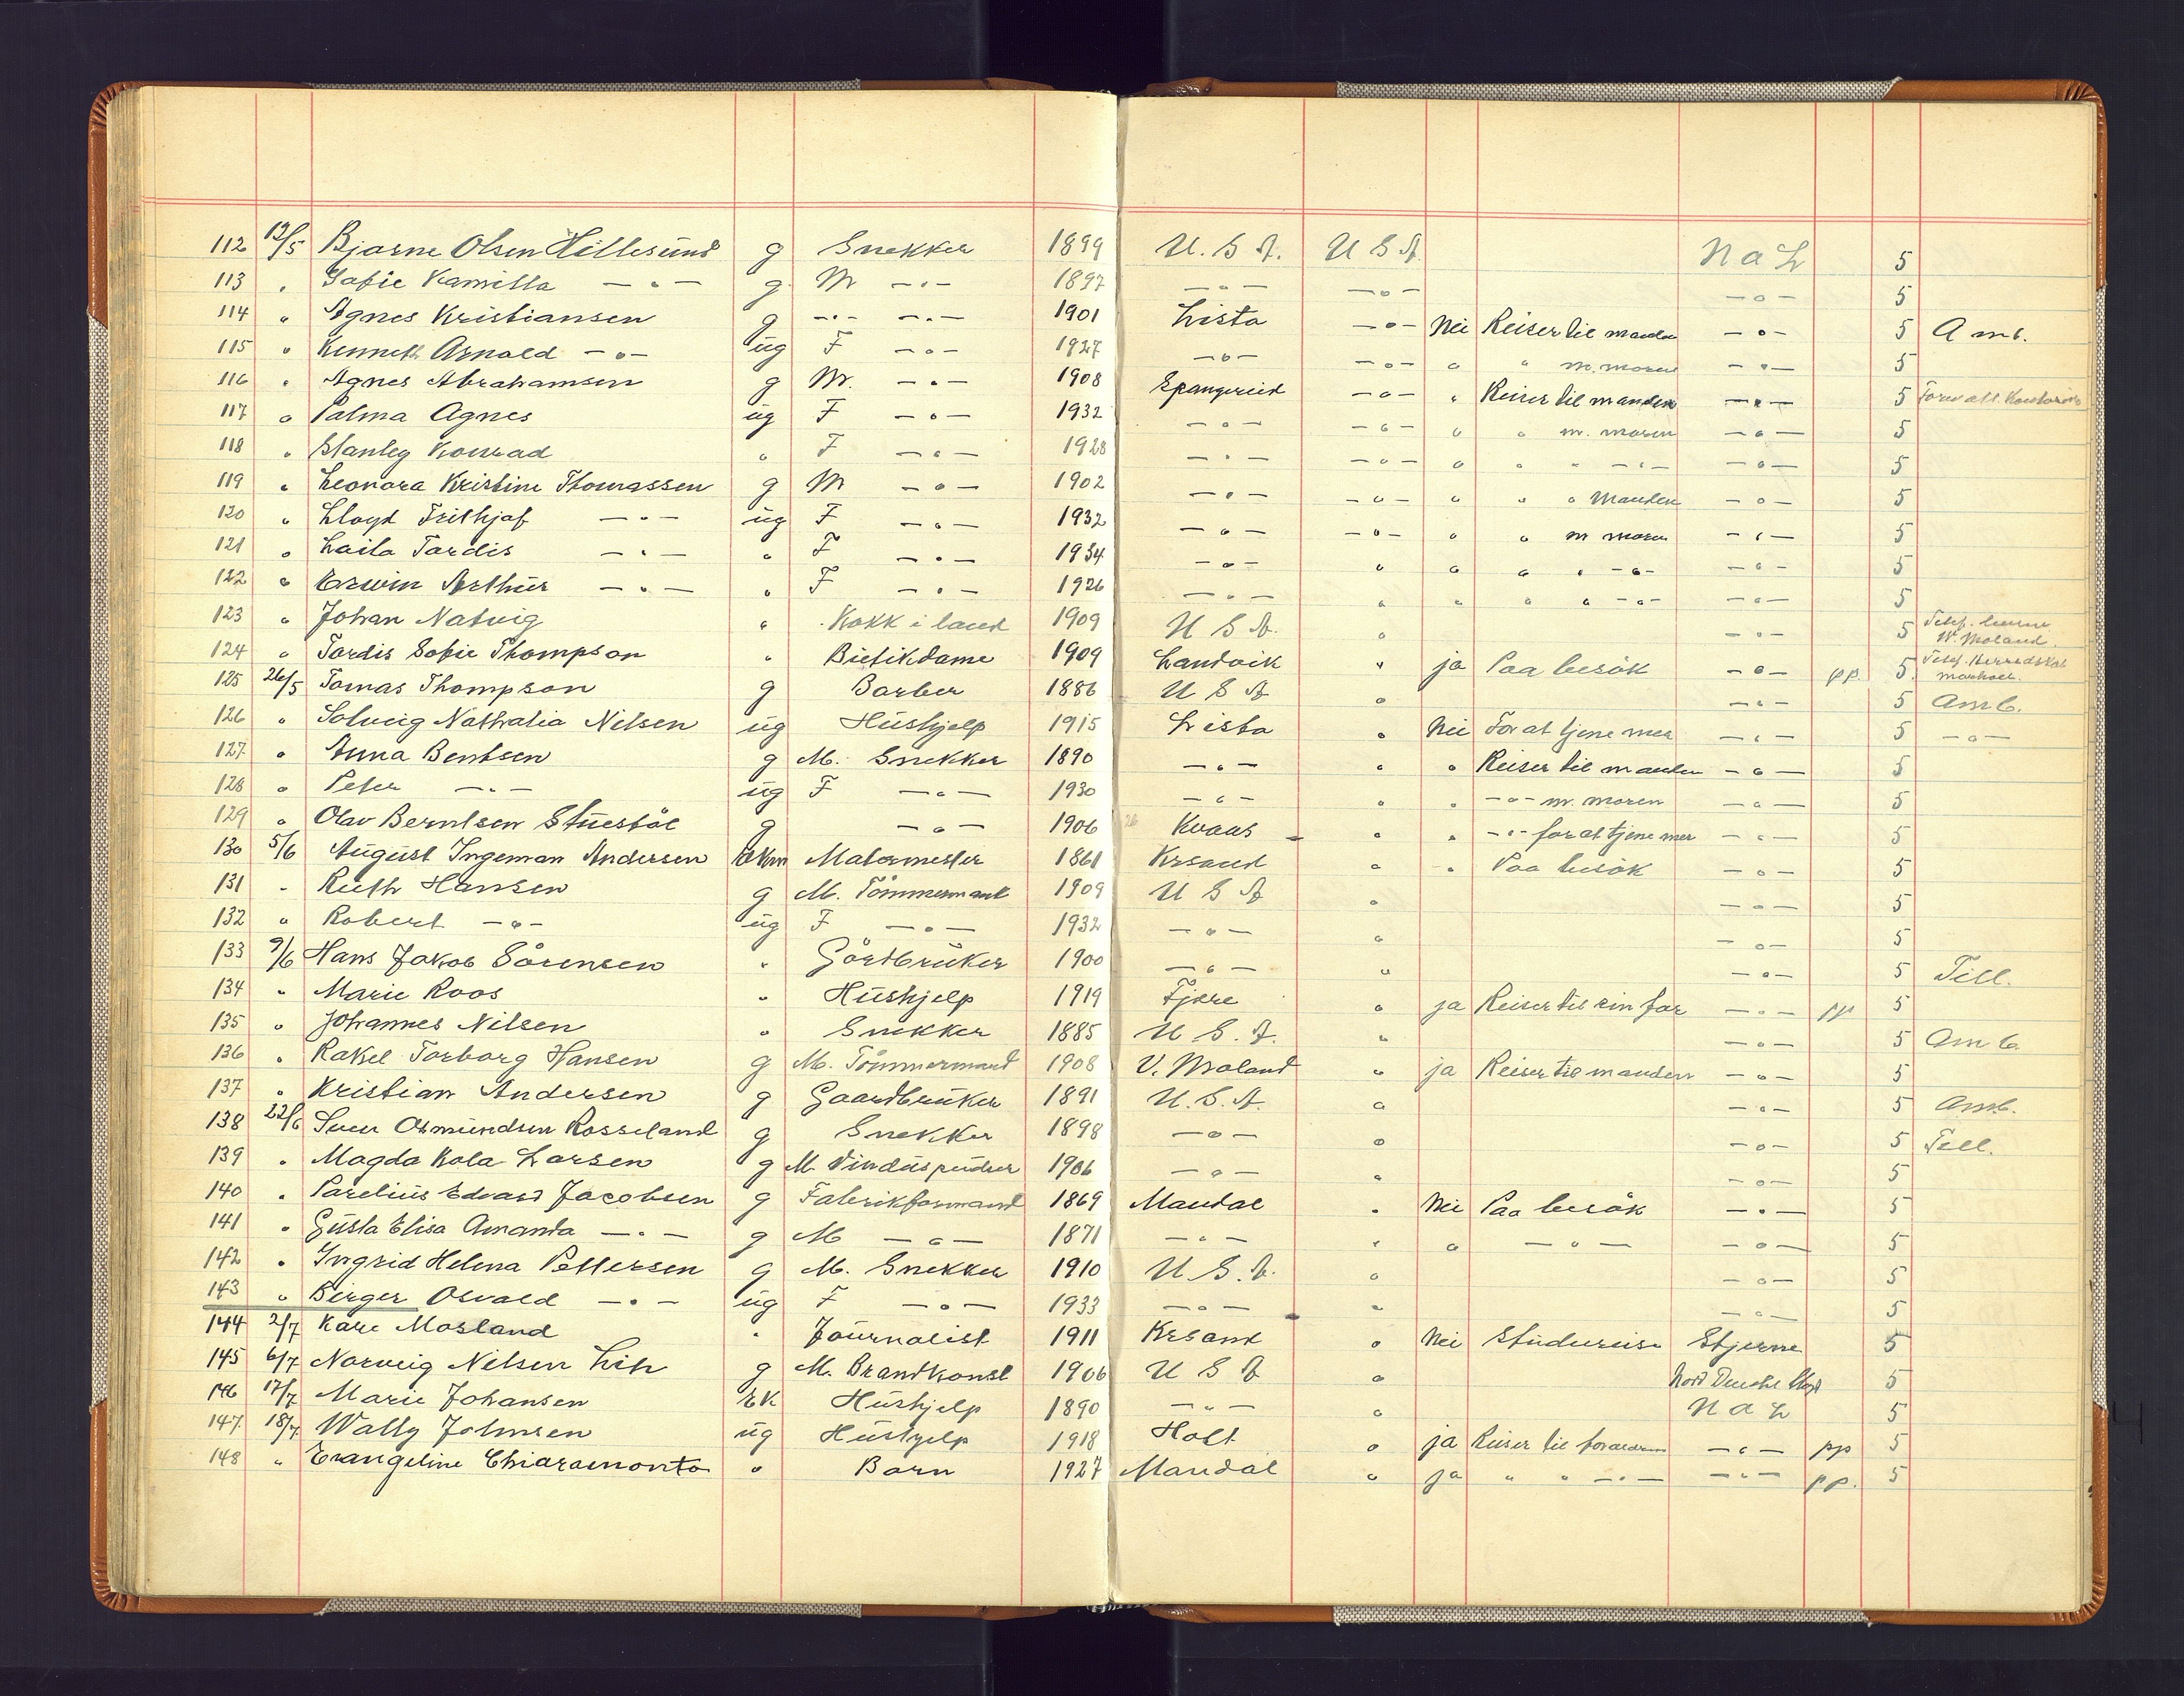 112 12/5 Bjarne Olsen Hillesund g Snekker 1899 U.S.A. U S A N a L 5
113 " Sofie Kamilla — " — g M — " — 1897 — " — — " — — " — 5
114 " Agnes Kristiansen g — " — — " — 1901 Lista — " — Nei Reiser til manden — " — 5 Amb.
115 " Kenneth Arnold — " — ug F — " — 1927 — " — — " — " " m. moren — " — 5
116 " Agnes Abrahamsen g M. — " — 1908 Spangereid — " — " Reiser til manden — " — 5
117 " Palma Agnes ug F — " — 1932 — " — — " — " " m. moren — " — 5
118 " Stanley Konrad " F — " — 1928 — " — — " — " " " — " — — " — 5
119 " Leonora Kristine Thomassen g M — " — 1902 — " — — " — " " " Manden — " — 5
120 " Lloyd Frithjof — " — ug F — " — 1932 — " — — " — " " m moren — " — 5
121 " Laila Tordis — " — " F — " — 1934 — " — " " " " — " — — " — 5
122 " Erwin Arthur — " — " F — " — 1926 — " — " " " " — " — — " — 5
123 " Johan Natvig " Kokk i land 1909 U S A. " — " — 5 W. Moland
124 " Tordis Sofie Thompson " Bietikdame 1909 Landvik " ja Paa besök — " — pp. 5
125 26/5 Tomas Thompson g Barber 1886 U S A " — " — 5 Amb.
126 " Solveig Nathalia Nilsen ug Hushjelp 1915 Lista " Nei For at tjene mer — " — 5 — " —
127 " Anna Bentsen g M. Snekker 1890 — " — " " Reiser til manden — " — 5
128 " Peter — " — ug F — " — 1930 — " — " " — " — m. moren — " — 5
129 " Olav Berntsen Stuestöl g — " — 1906 Kvaas " " — " — for at tjene mer — " — 5
130 5/6 August Ingeman Andersen Ekm Malermester 1861 Krsand " " Paa besök — " — 5
131 " Ruth Hansen g M. Tömmermand 1909 U S A " — " — 5
132 " Robert — " — ug F — " — 1932 — " — " — " — 5
133 9/6 Hans Jakob Sörensen " Gårdbruker 1900 — " — " — " — 5 Tell.
134 " Marie Roos " Hushjelp 1919 Fjære " ja Reiser til sin far — " — pp 5
135 " Johannes Nilsen " Snekker 1885 U S. A. " — " — 5 Amb.
136 " Rakel Torborg Hansen g M. Tömmermand 1908 V. Moland " ja Reiser til manden — " — 5
137 " Kristian Andersen g Gaardbruker 1891 U.S.A. " — " — 5 Amb.
138 22/6 Sven Osmundsen Rosseland g Snekker 1898 — " — " — " — 5 Tell.
139 " Magda Kola Larsen g M. Vinduspudser 1906 — " — " — " — 5
140 " Parelius Edvard Jacobsen g Fabrikformand 1869 Mandal " Nei Paa besök — " — 5
141 " Gusta Elisa Amanda — " — g M — " — 1871 — " — " " — " — — " — 5
142 " Ingrid Helena Pettersen g M. Snekker 1910 U S. A. " — " — 5
143 " Birger Osvald — " — ug F — " — 1933 — " — " — " — 5
144 2/7 Kåre Mosland " Journalist 1911 Krsand " Nei Studiereise Stjerne 5
145 6/7 Norveig Nilsen Lih g M. Brandkonst 1906 U S A " Nord Deutsche Lloyd 5
146 17/7 Marie Johansen EK Hushjelp 1890 — " — " N a L 5
147 18/7 Wally Johnsen ug Hushjelp 1918 Holt " ja Reiser til foreldrene — " — pp 5
148 " Evangeline Chiaramonto " Barn 1927 Mandal " ja " " — " — — " — pp. 5